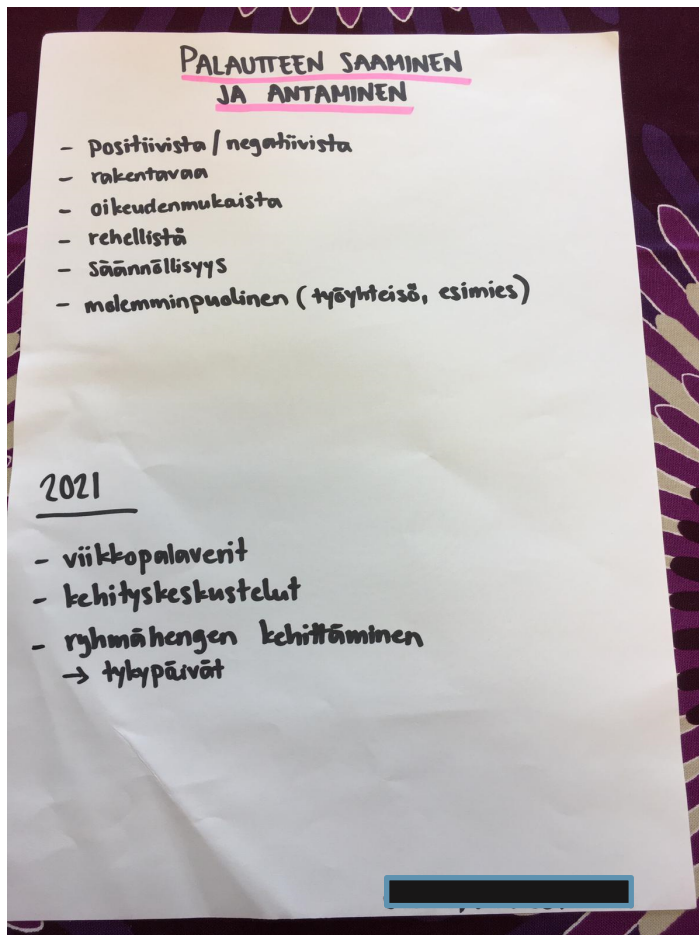 PALAUTTEEN SAAMINEN
JA ANTAMINEN
- positiivista / negatiivista
- rakentavaa
- oikeudenmukaista
- rehellistä
- säännöllisyys
- molemminpuolinen (työyhteisö, esimies)
2021
- viikkopalaverit
- kehityskeskustelut
- ryhmähengen kehittäminen
→ tykypäivät